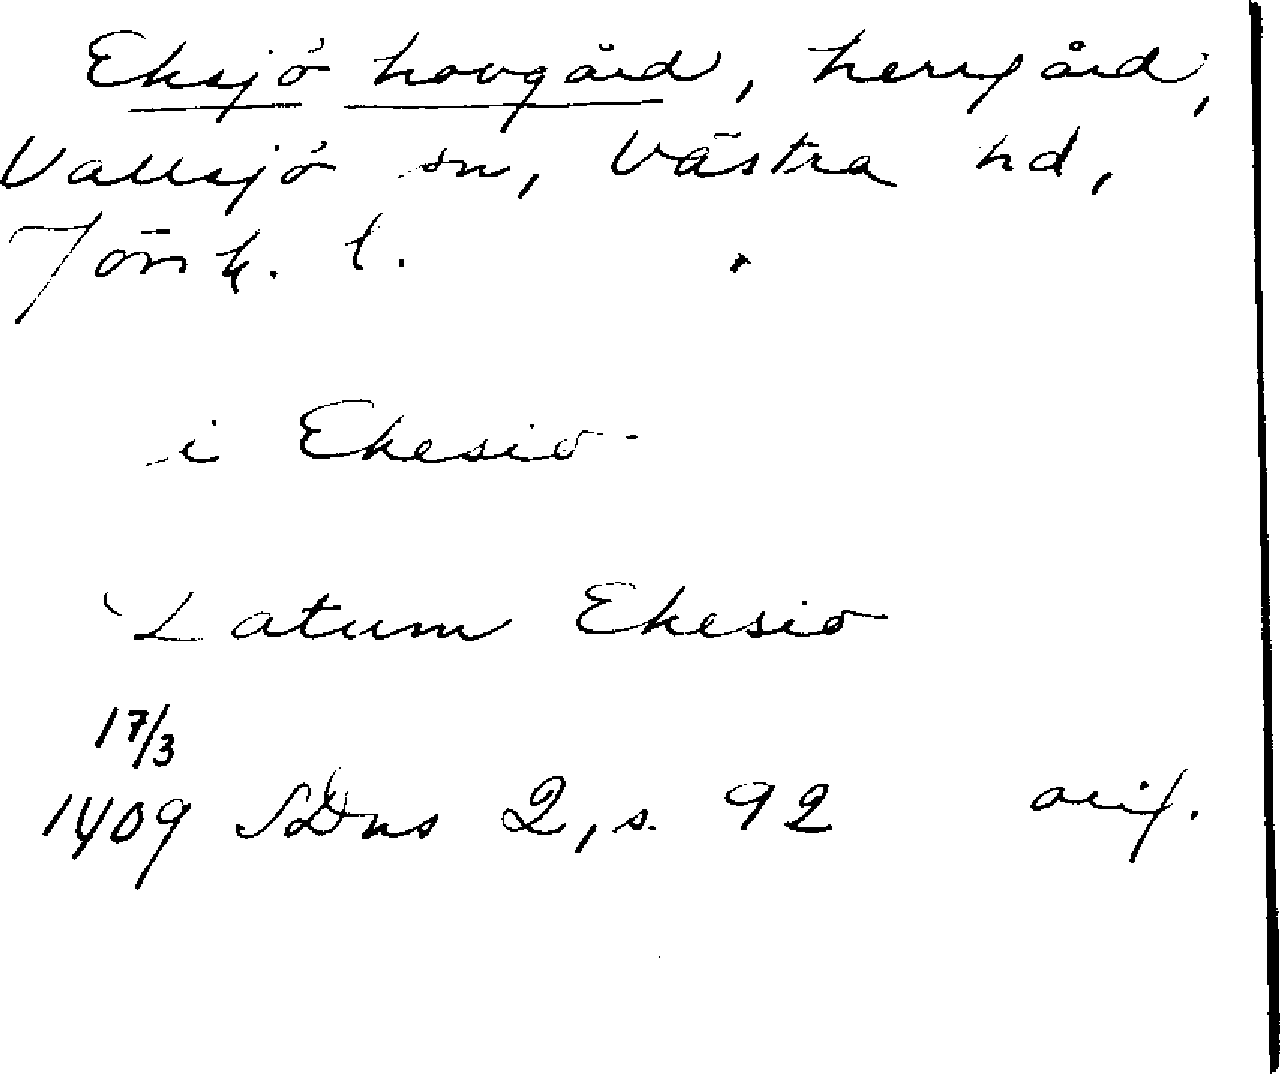 Eksjö hovgård, herrgård,
Vallsjö sn, Västra hd,
Jönk. l.
i Ekesio
Datum Ekesio
17/3
1409 SDns 2, s. 92 orig.